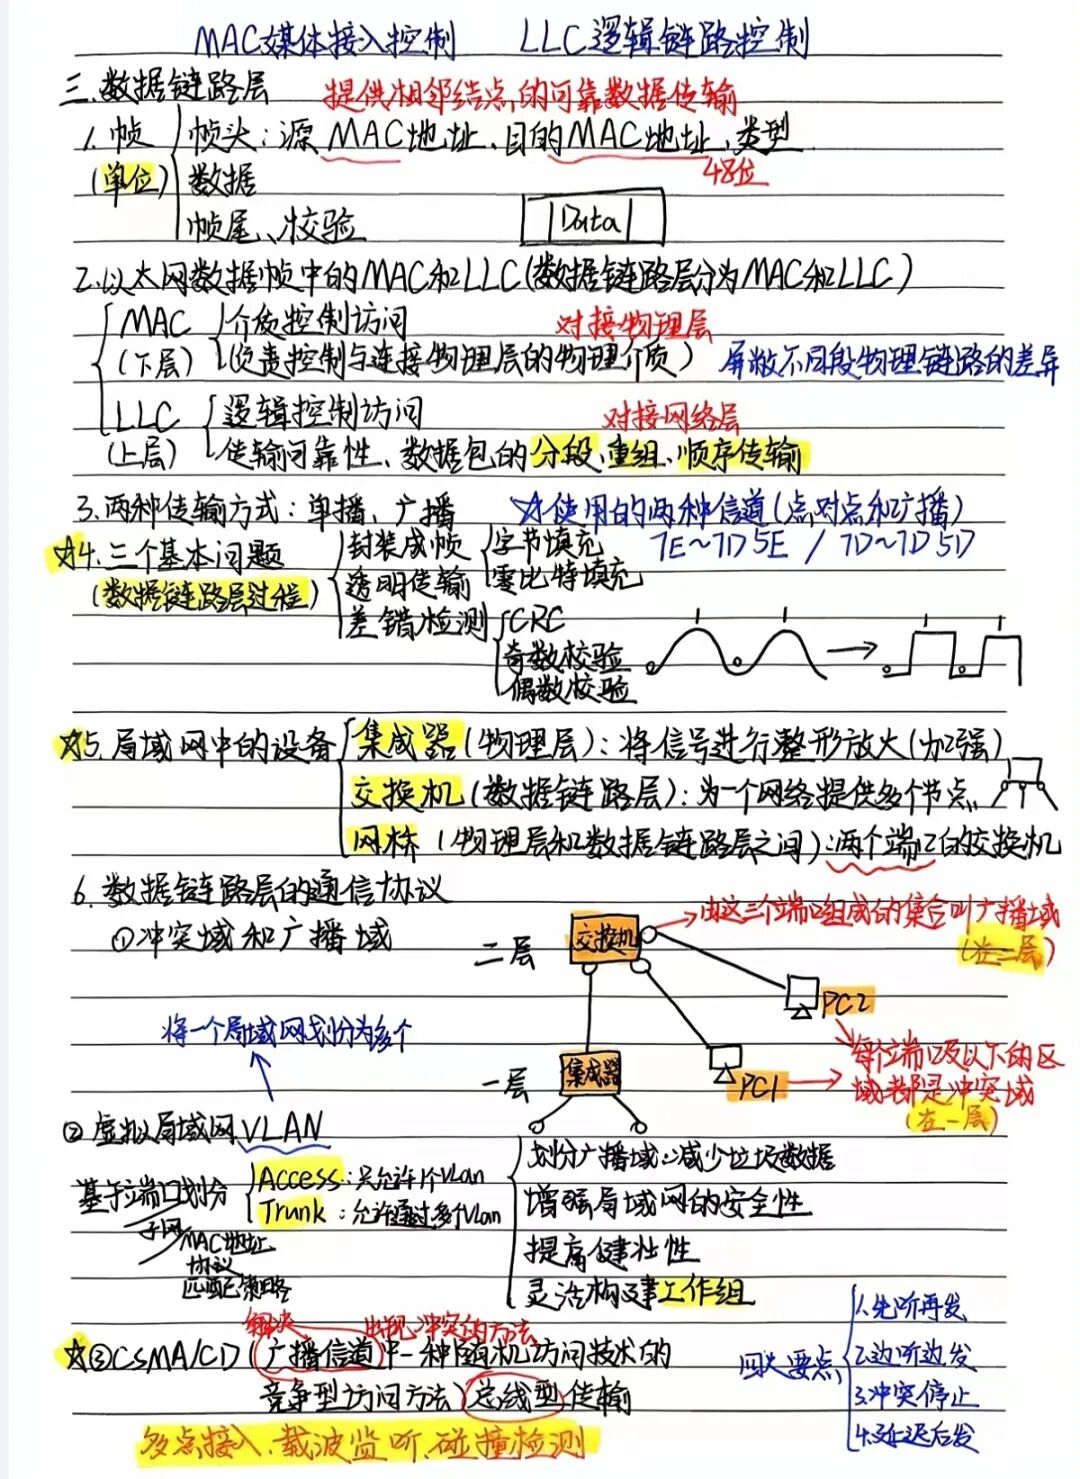 MAC媒体接入控制 LLC逻辑链路控制
三.数据链路层 提供相邻结点的可靠数据传输
1.帧 帧头:源MAC地址、目的MAC地址、类型
(单位) 数据 48位
帧尾、校验 Data
2.以太网数据帧中的MAC和LLC(数据链路层分为MAC和LLC)
MAC 介质控制访问 对接物理层
(下层) (负责控制与连接物理层的物理介质) 屏蔽不同段物理链路的差异
LLC 逻辑控制访问 对接网络层
(上层) 传输可靠性、数据包的分段、重组、顺序传输
3.两种传输方式:单播、广播 ☆使用的两种信道(点对点和广播)
☆4.三个基本问题 封装成帧 字节填充 7E~7D5E / 7D~7D5D
(数据链路层过程) 透明传输 零比特填充
差错检测 CRC
奇数校验
偶数校验
☆5.局域网中的设备 集成器(物理层):将信号进行整形放大(加强)
交换机(数据链路层):为一个网络提供多个节点
网桥(物理层和数据链路层之间):两个端口的交换机
6.数据链路层的通信协议
①冲突域和广播域 交换机 由这三个端口组成的集合叫广播域
二层 (在二层)
PC2
将一个局域网划分为多个 每个端口及以下的区
一层 集成器 PC1 域都是冲突域
(在一层)
②虚拟局域网VLAN 划分广播域,减少垃圾数据
基于端口划分 Access:只允许1个Vlan
Trunk:允许通过多个Vlan 增强局域网的安全性
子网
MAC地址 提高健壮性
协议
匹配策略 灵活构建工作组
解决 出现冲突的方法
☆③CSMA/CD(广播信道中一种随机访问技术的
竞争型访问方法)总线型传输
四大要点 1.先听再发
2.边听边发
3.冲突停止
4.延迟后发
多点接入、载波监听、碰撞检测